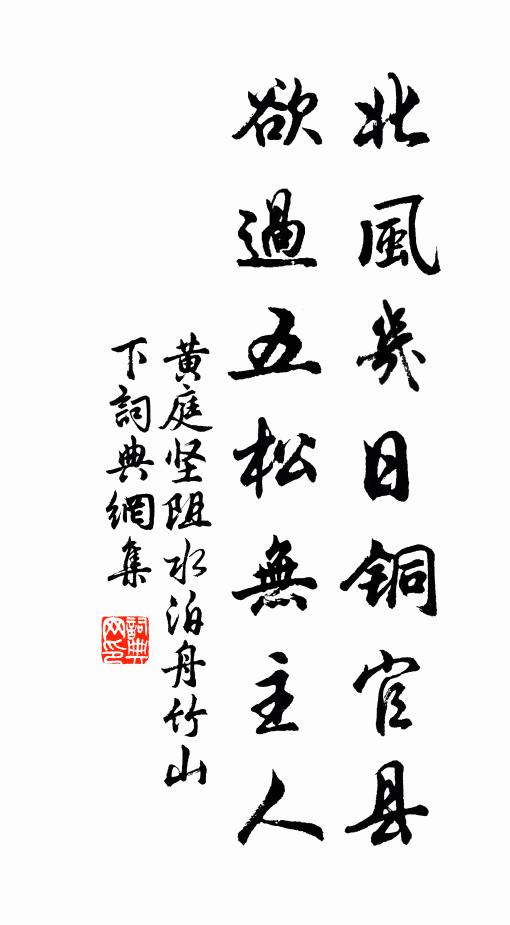 北風幾日铜官县
欲過五松無主人
黄庭坚阻水泊舟竹山
下詞典網集
詞典
网印